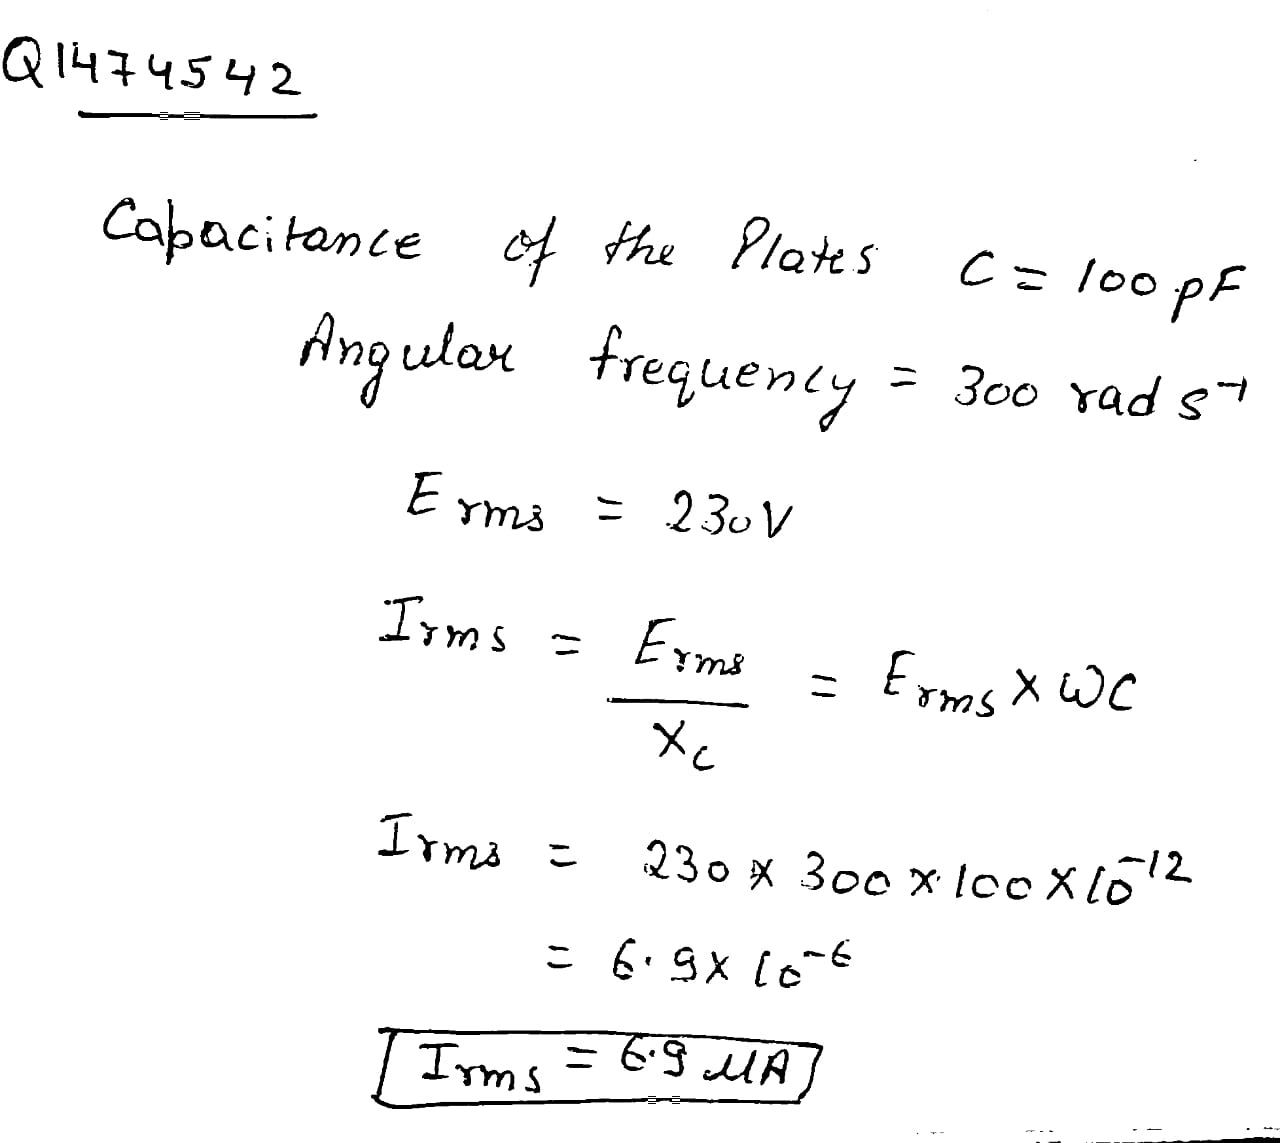 Q1474542
Capacitance of the Plates C = 100 pF
Angular frequency = 300 rad s⁻¹
Erms = 230V
Irms = Erms / Xc = Erms × ωC
Irms = 230 × 300 × 100 × 10⁻¹²
= 6.9 × 10⁻⁶
Irms = 6.9 μA